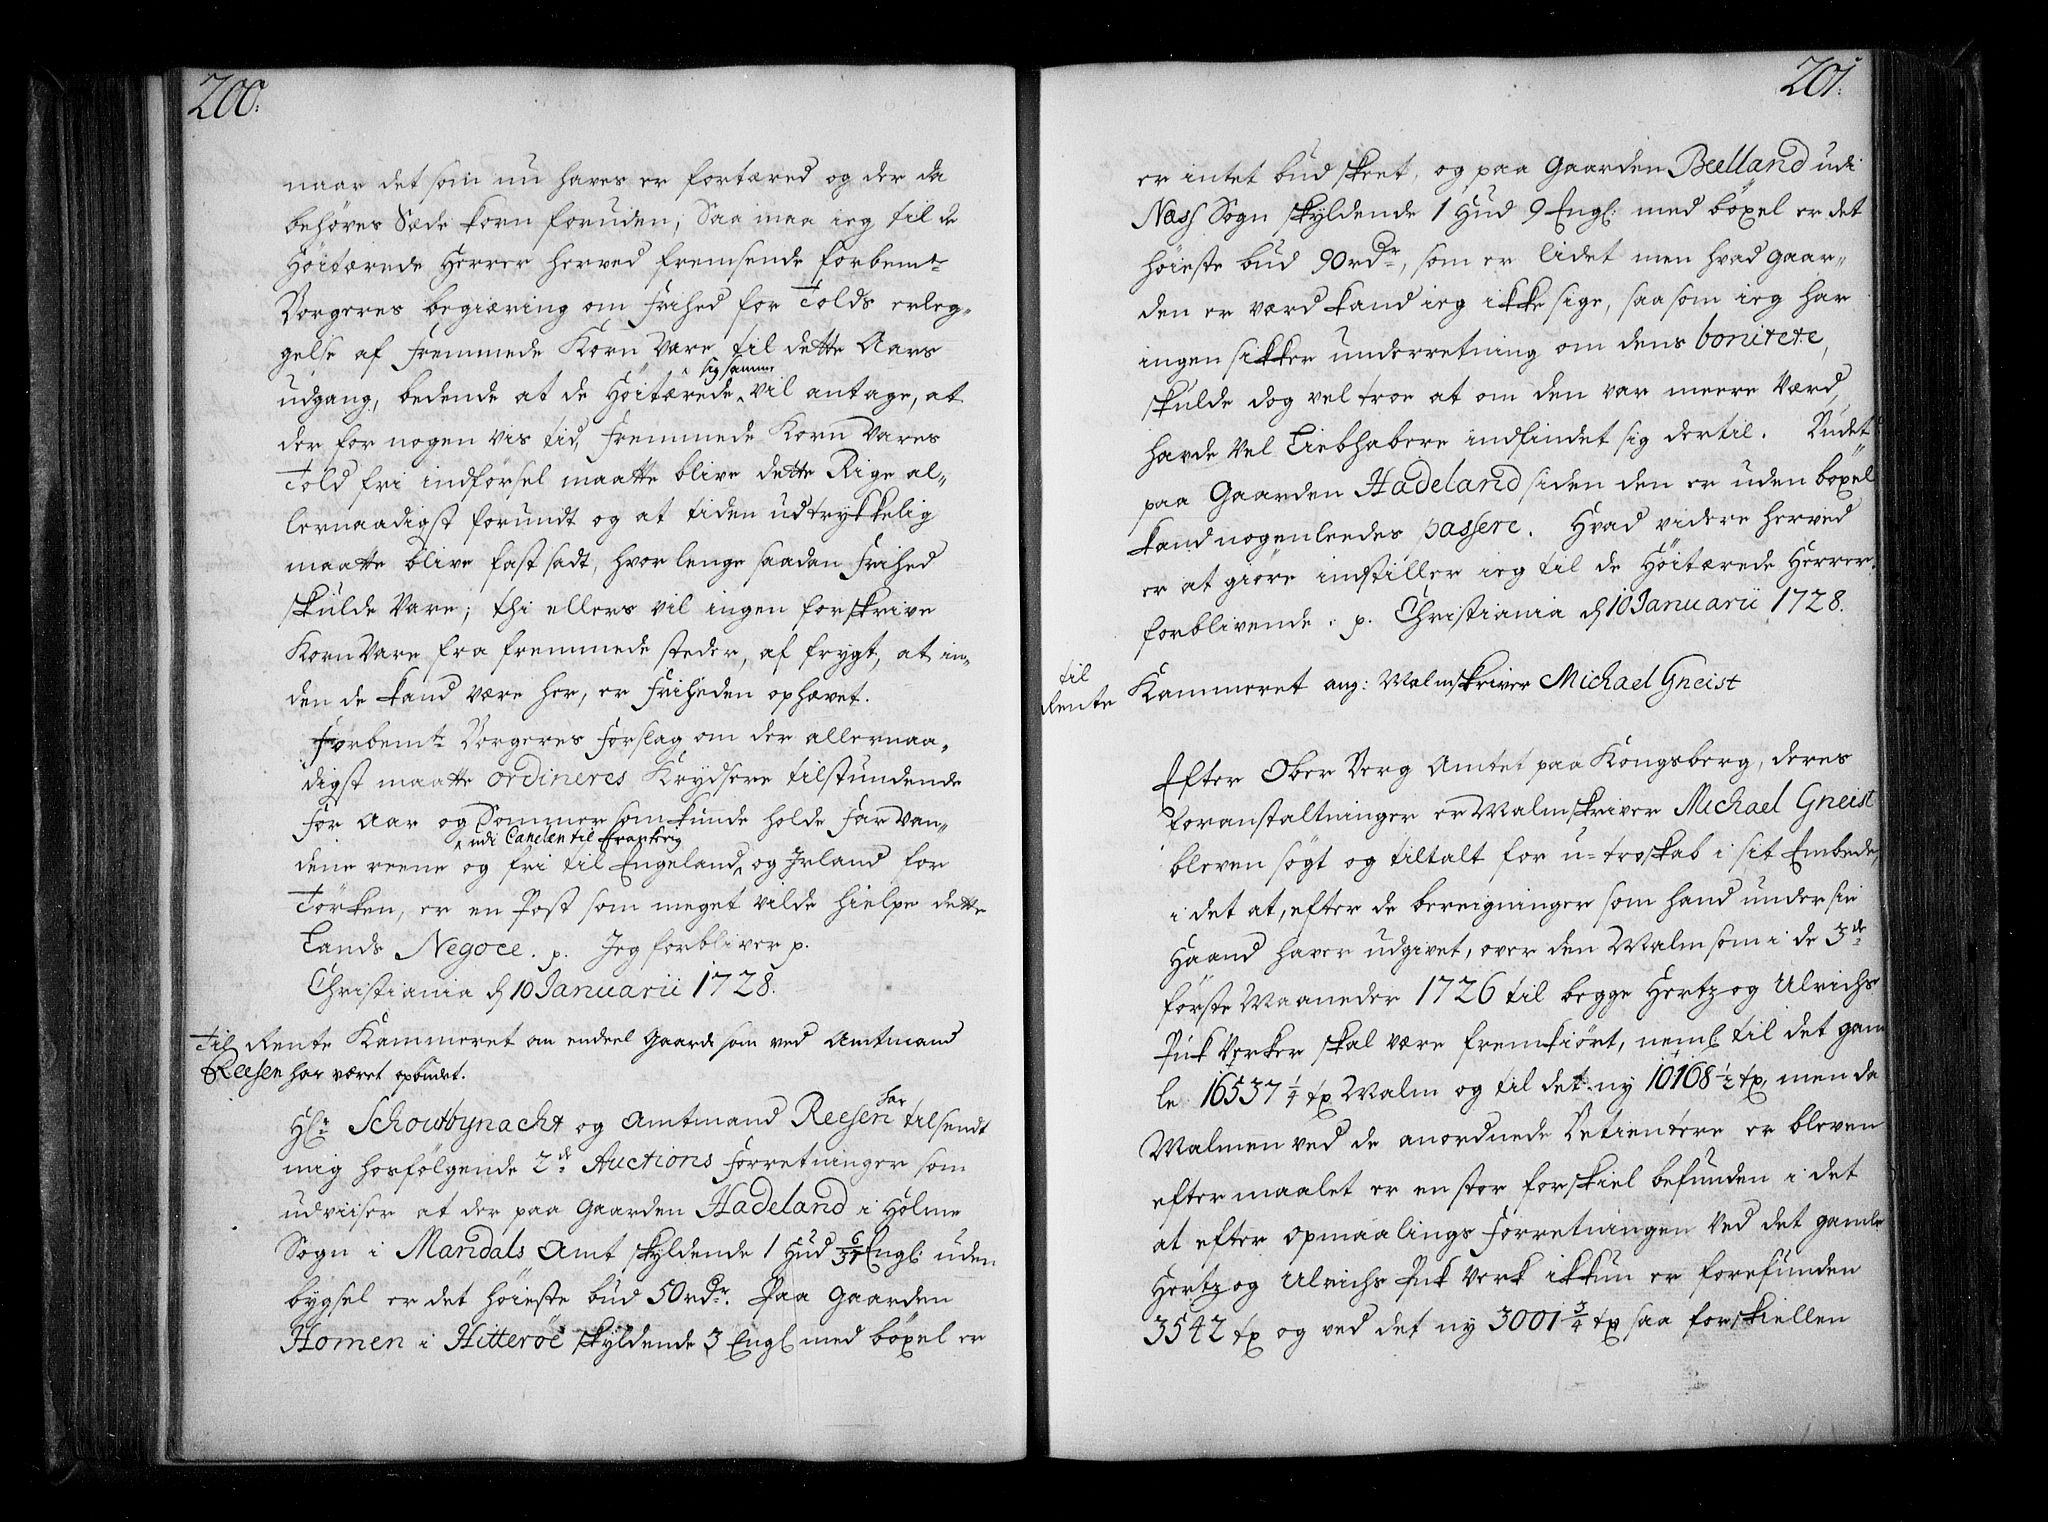 200.
naar det som nu haves er fortæred og der da
behöves Sæde korn foruden; Saa maa ieg til de
Höitærede Herrer herved fremsende forbemte
Borgeres begiæring om frihed for Tolds erleg-
gelse af fremmede Korn Vare til dette Aars
udgang, bedende at de Höitærede sig samme vil antage, at
der for nogen vis tid, fremmede Korn Vares
Told fri indförsel maatte blive dette Rige al-
lernaadigst forundt og at tiden udtrykkelig
maatte blive fastsadt, hvor lenge saadan frihed
skulde vare; thi ellers vil ingen forskrive
Korn Vare fra fremmede steder, af frygt, at in-
den de kand være her, er friheden ophævet.
Forbemte Borgeres forslag om der allernaa-
digst maatte ordineres Krydsere tilstundende
for Aar og Sommer som kunde holde farvan-
udi Canelen til Frankerig
dene reene og fri til Engeland, og Irland for
Törken, er en Post som meget vilde hielpe dette
Lands Negoce. p. Jeg forbliver p.
Christiania d 10 Januarii 1728.
Til Rente Kammeret an endeel Gaarde som ved Amtmand
Reesen har været opbudet.
Hr Schoutbynacht og Amtmand Reesen har tilsendt
mig hosfölgende 2de Auctions forretninger som
udviiser at der paa Gaarden Hadeland i Holme
Sogn i Mandals Amt skyldende 1 Hud 6/37 Engl: uden
bygsel er det höieste bud 50 rdr. Paa Gaarden
Homen i Hitteröe skyldende 3 Engl med böxel er
201.
er intet bud skeet, og paa Gaarden Beelland udi
Næss Sogn skyldende 1 Hud 9 Engl: med böxel er det
höieste bud 90 rdr, som er lidet men hvad Gaar-
den er værd kand ieg ikke sige, saasom ieg har
ingen sikker underretning om dens bonitete,
skulde dog vel troe at om den var meere værd,
havde vel Liebhabere indfindet sig dertil. Budet
paa Gaarden Hadeland siden den er uden böxel
kand nogenleedes passere. Hvad videre herved
er at giöre indstiller ieg til de Höitærede Herrer.
forblivende. p. Christiania d 10 Januarii 1728.
til
Rente Kammeret ang: Malmskriver Michael Gneist
Efter Ober Berg Amtet paa Kongsberg, deres
foranstaltninger er Malmskriver Michael Gneist
bleven sögt og tiltalt for u-troskab i sit Embede,
i det at, efter de bereigninger som hand under sin
Haand haver udgivet, over den Malm som i de 3de
förste Maaneder 1726 til begge Hertzog Ulrichs
Puk Verker skal være fremkiört, neml: til det gam
le 16537 1/4 tp Malm og til det ny 10168 1/2 tp, men da
Malmen ved de anordnede Betientere er bleven
eftermaalet er en stor forskiel befunden i det
at efter opmaalings forretningen ved det gamle
Hertzog Ulrichs Puk Verk ikkun er forefunden
3542 tp og ved det ny 3001 3/4 tp saa forskiellen